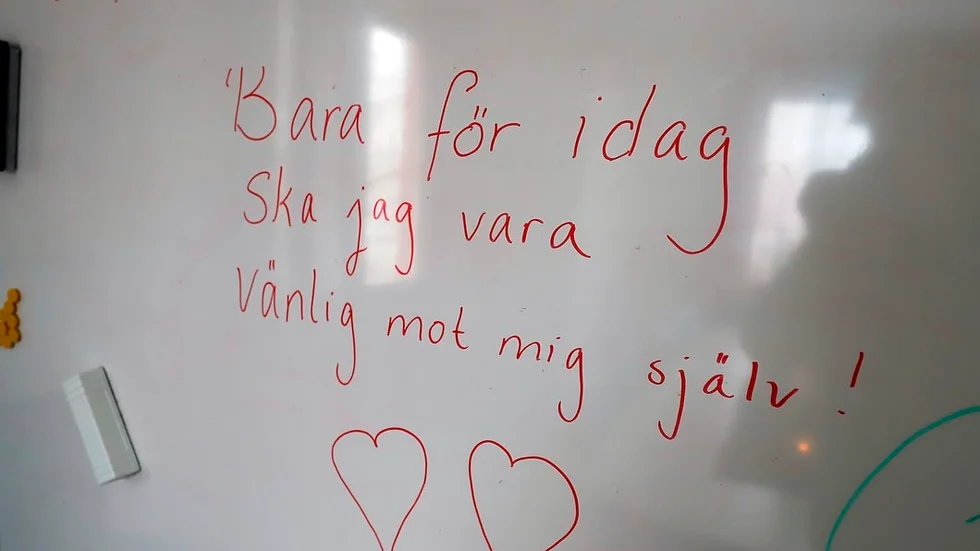 "Bara för idag
Ska jag vara
Vänlig mot mig själv!